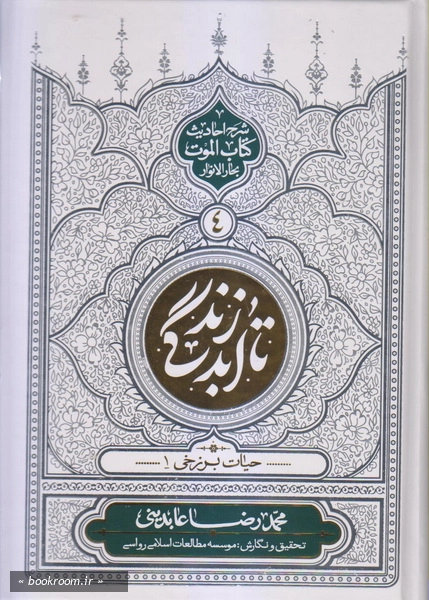 شرح احادیث
کتاب الموت
بحارالانوار
٤
تا ابد زندگی
حیات برزخی ۱
محمدرضا عابدینی
تحقیق و نگارش: موسسه مطالعات اسلامی رواسی
« bookroom.ir »